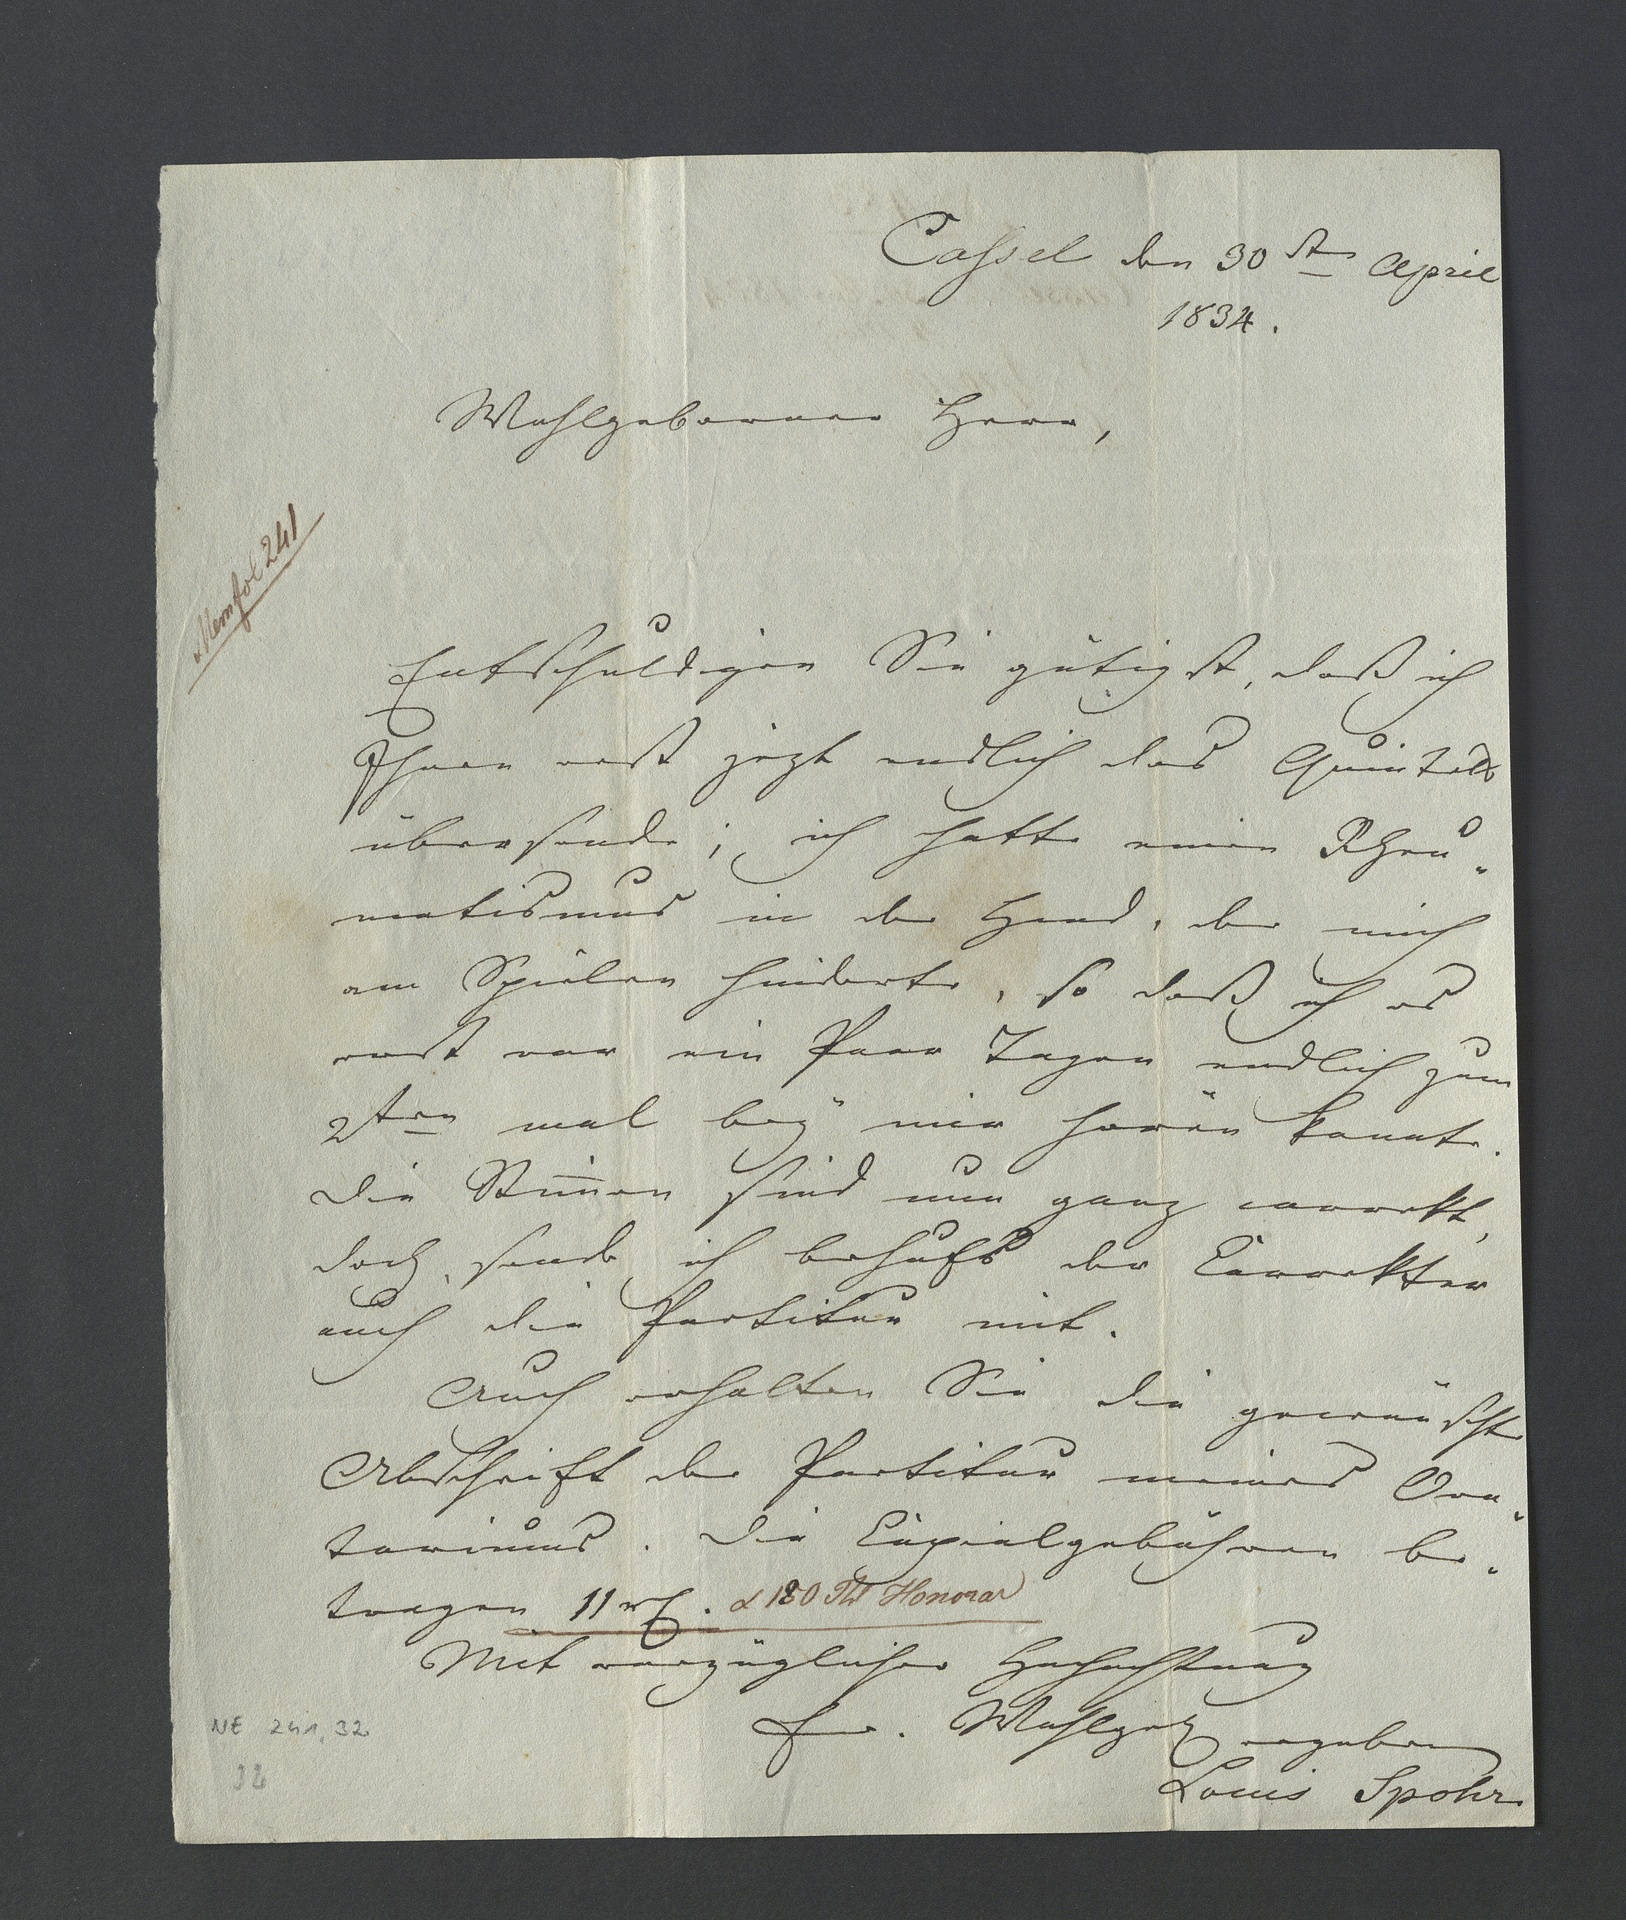 Cassel den 30sten April
1834.
Wohlgeborner Herr,
Memfol 241
Entschuldigen Sie gütigst, daß ich
Ihnen erst jezt endlich das Quintett
übersende; ich hatte einen Rheu-
matismus in der Hand, der mich
am Spielen hinderte, so daß ich es
erst vor ein Paar Tagen endlich zum
2ten mal bey mir hören konnte.
Die Stim̄en sind nun ganz correkt,
doch sende ich behufs der Correktur
auch die Partitur mit.
Auch erhalten Sie die gewünschte
Abschrift der Partitur meines Ora-
toriums. Die Copialgebühren be-
tragen 11 rℓ. & 180 Thl Honorar
Mit vorzüglicher Hochachtung
Ew. Wohlgeb ergebener
Louis Spohr.
NE 241, 32
32